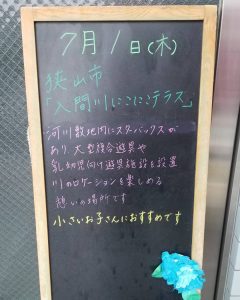 7月1日(木)
狭山市
「入間川にこにこテラス」
河川敷地内にスターバックスが
あり、大型複合遊具や
乳幼児向け遊具施設を設置
川のロケーションを楽しめる
憩いの場所です
小さいお子さんにおすすめです